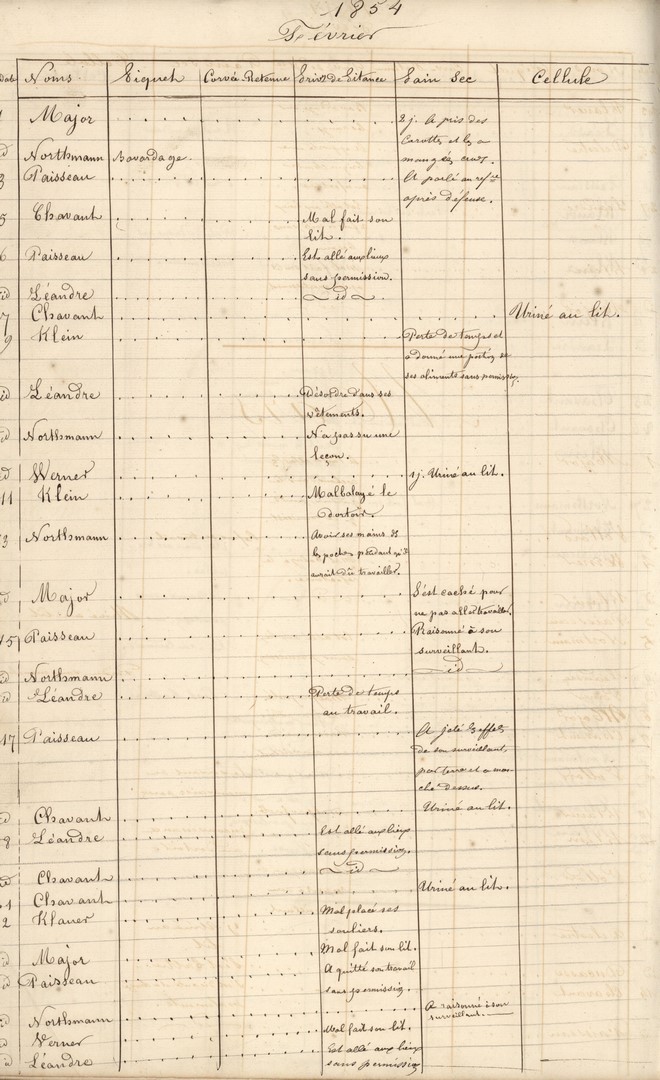 1854
Février
Date Noms Piquet Corvée-Retenue Privon de Pitance Pain Sec Cellule
1 Major 2 j. A pris des
carottes et les a
id Northmann Bavardage. mangées crues.
3 Paisseau A parlé au refre
après défense.
5 Chavant Mal fait son
lit.
6 Paisseau Est allé aux lieux
sans permission.
id Léandre id
7 Chavant Uriné au lit.
9 Klein Perte de temps et
a donné une portion de
ses aliments sans permission.
id Léandre Désordre dans ses
vêtements.
id Northmann N'a pas su une
leçon.
id Werner 1 j. Uriné au lit.
11 Klein Mal balayé le
dortoir.
3 Northmann Avoir ses mains ds
les poches pendant qu'il
aurait dû travailler.
id Major S'est caché pour
ne pas aller travailler.
15 Paisseau Raisonné à son
surveillant.
id Northmann id
id Léandre Perte de temps
au travail.
17 Paisseau A jeté les effets
de son surveillant
par terre et a mar-
ché dessus.
id Chavant Uriné au lit.
8 Léandre Est allé aux lieux
sans permission.
id Chavant id
1 Chavant Uriné au lit.
2 Klaner Mal placé ses
souliers.
id Major Mal fait son lit.
id Paisseau A quitté son travail
sans permission.
id Northmann A raisonné à son
surveillant.
id Verner Mal fait son lit.
id Léandre Est allé aux lieux
sans permission